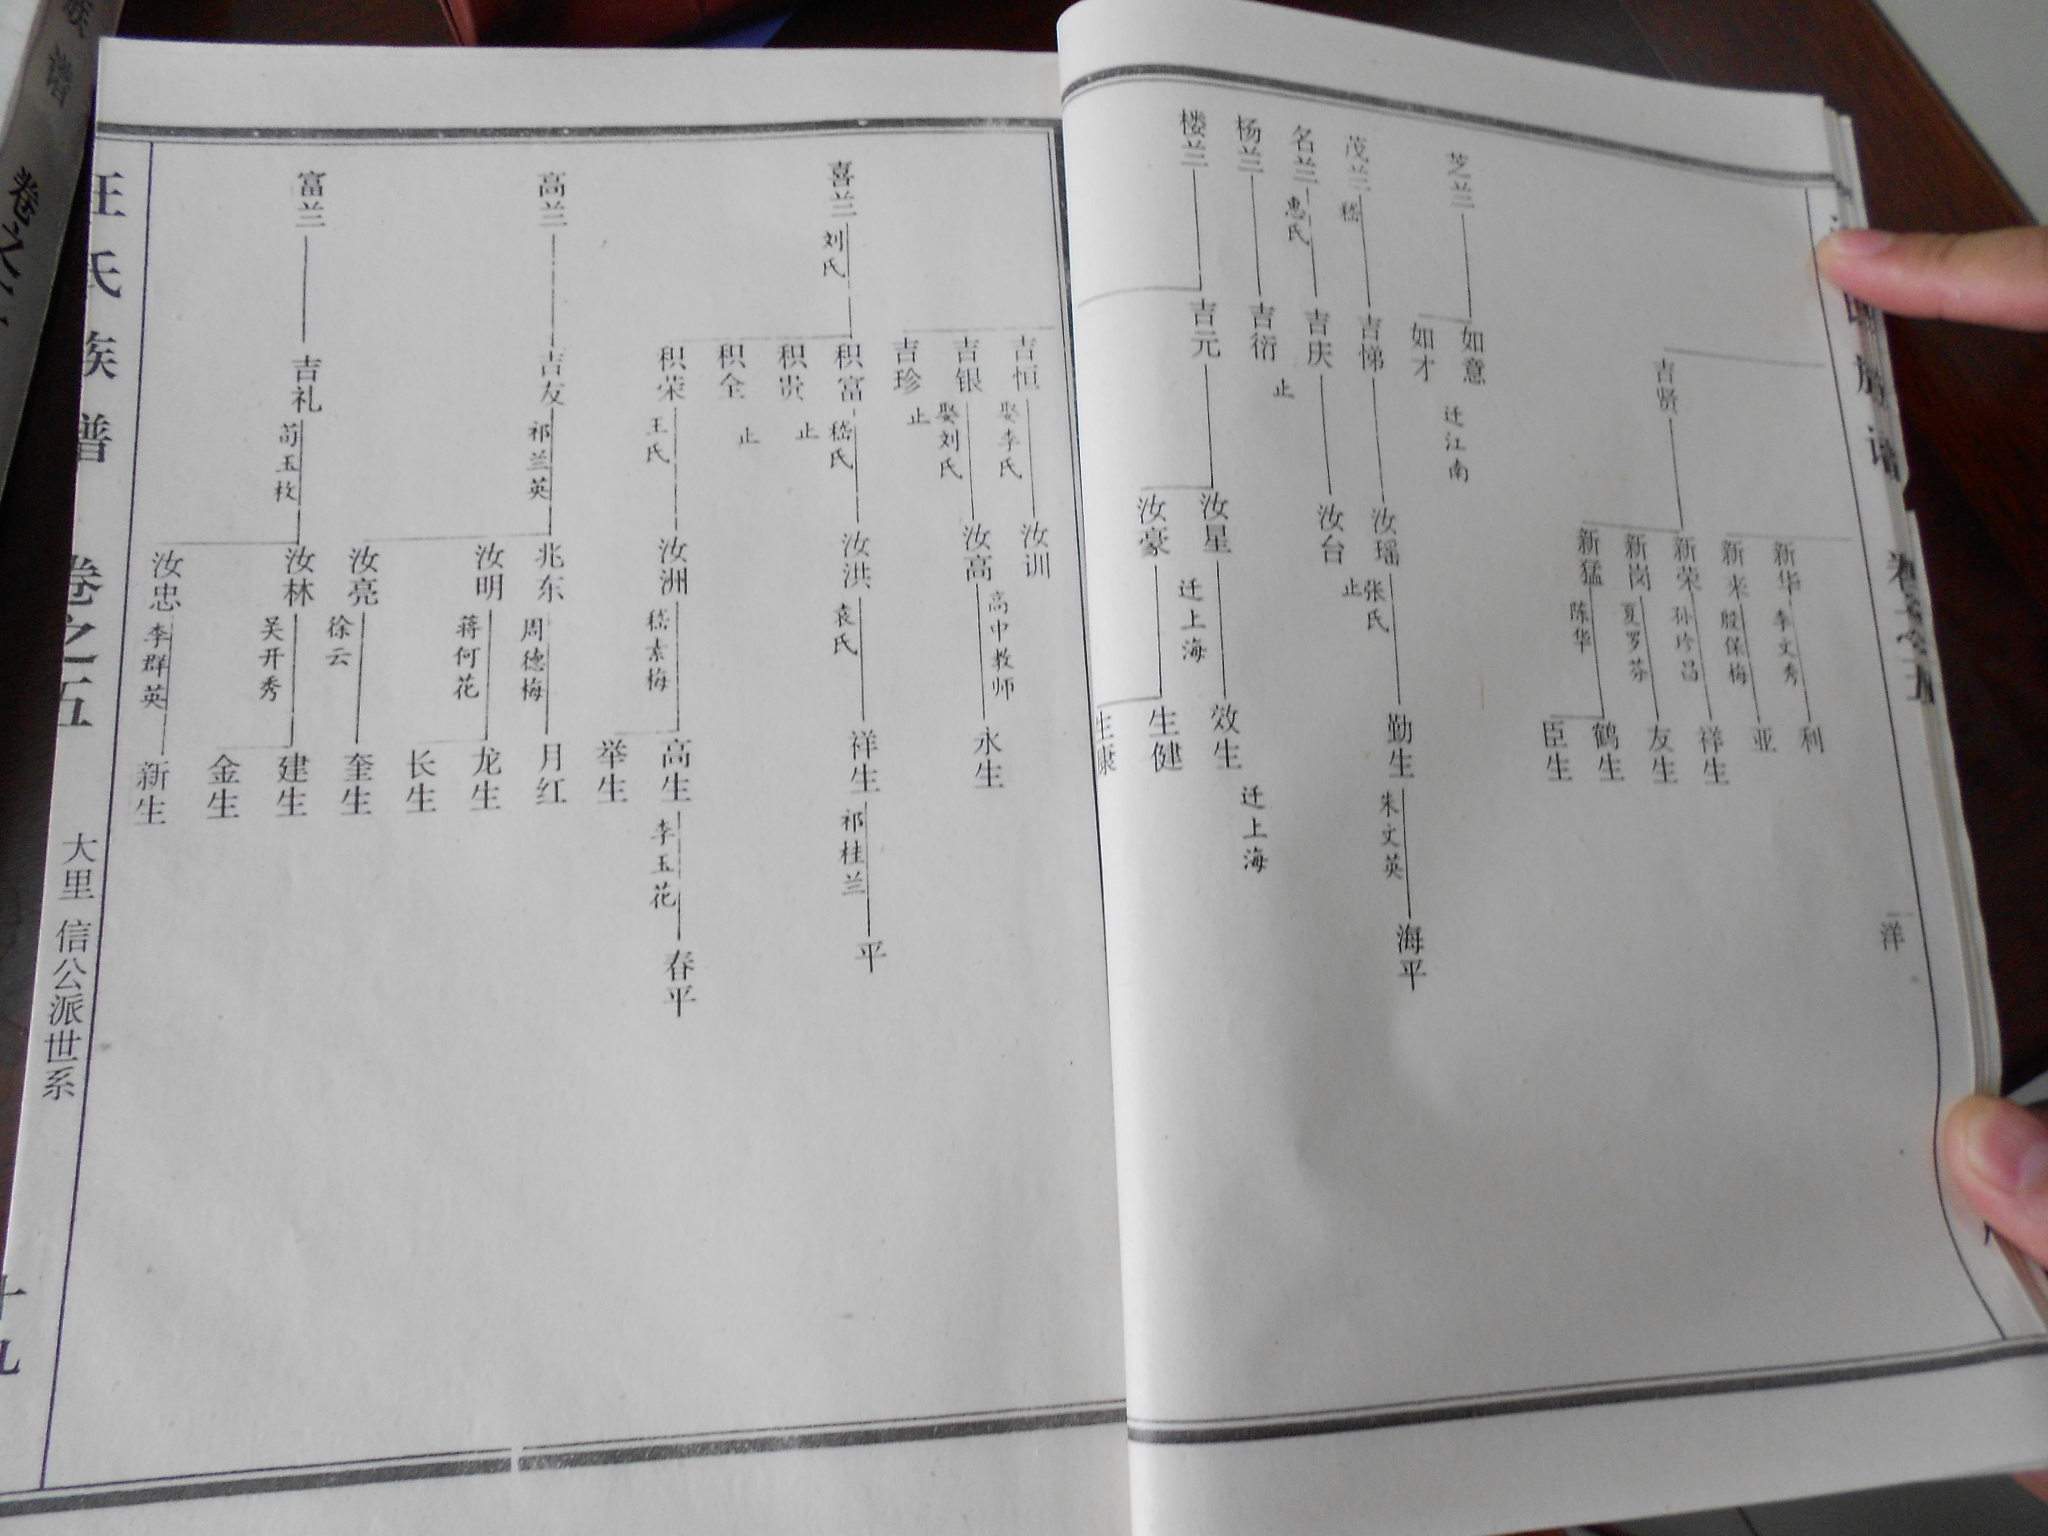 洋
吉贤
新华
李文秀
利
新来
殷保梅
亚
新荣
孙珍昌
祥生
新岗
夏罗芬
友生
新猛
陈华
鹤生
臣生
芝兰
如意
迁江南
如才
茂兰
嵇
吉悌
汝瑶
张氏
勤生
朱文英
海平
名兰
惠氏
吉庆
汝台
止
杨兰
吉衍
止
楼兰
吉元
汝星
迁上海
效生
迁上海
汝豪
生健
生康
吉恒
娶李氏
汝训
吉银
娶刘氏
汝高
高中教师
永生
吉珍
止
喜兰
刘氏
积富
嵇氏
汝洪
袁氏
祥生
祁桂兰
平
积贵
止
积全
止
积荣
王氏
汝洲
嵇素梅
高生
李玉花
春平
举生
高兰
吉友
祁兰英
兆东
周德梅
月红
汝明
蒋何花
龙生
长生
汝亮
徐云
奎生
富兰
吉礼
荀玉枚
汝林
吴开秀
建生
金生
汝忠
李群英
新生
汪氏族谱
卷之五
大里
信公派世系
十九